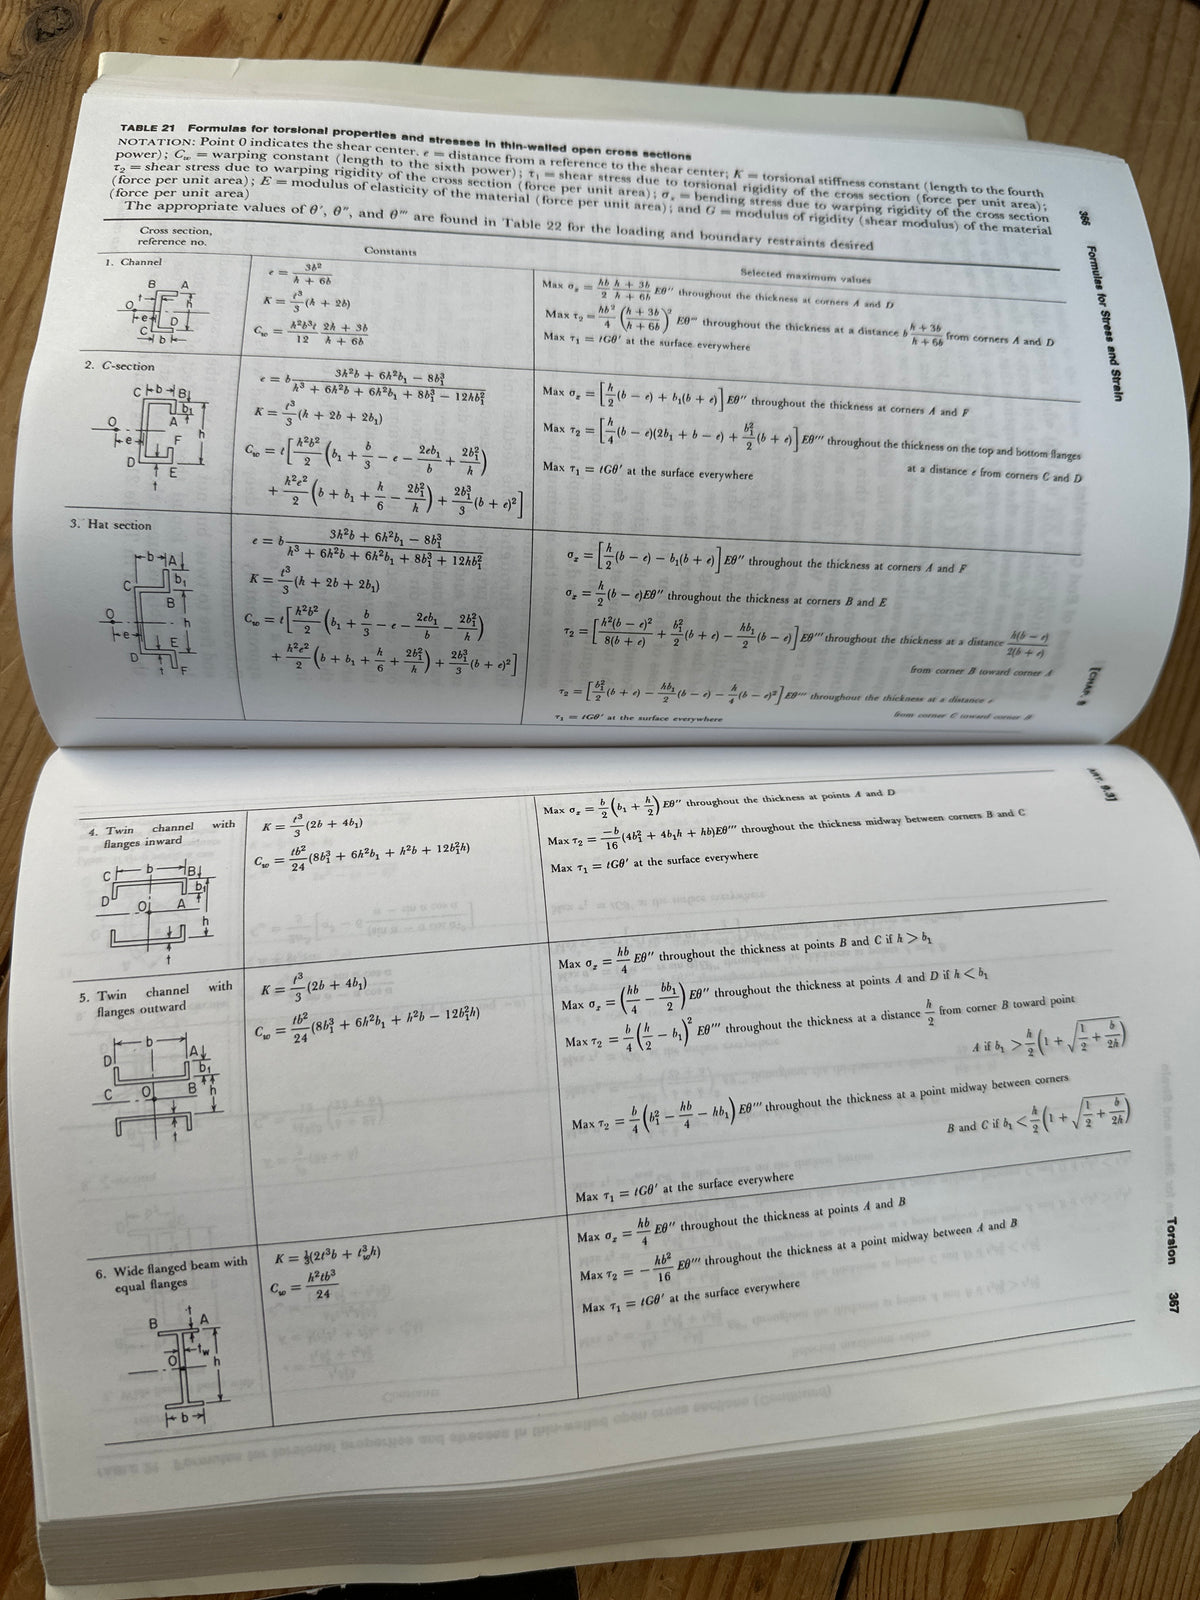 366 Formulas for Stress and Strain [CHAP. 9
TABLE 21 Formulas for torsional properties and stresses in thin-walled open cross sections
NOTATION: Point 0 indicates the shear center. e = distance from a reference to the shear center; K = torsional stiffness constant (length to the fourth
power); C_w = warping constant (length to the sixth power); τ₁ = shear stress due to torsional rigidity of the cross section (force per unit area);
τ₂ = shear stress due to warping rigidity of the cross section (force per unit area); σ_x = bending stress due to warping rigidity of the cross section
(force per unit area); E = modulus of elasticity of the material (force per unit area); and G = modulus of rigidity (shear modulus) of the material
(force per unit area)
The appropriate values of θ′, θ″, and θ‴ are found in Table 22 for the loading and boundary restraints desired
Cross section,
reference no.
Constants
Selected maximum values
1. Channel
B A
t h
O e D
C b
e = 3b²/(h + 6b)
K = t³/3 (h + 2b)
C_w = h²b³t/12 (2h + 3b)/(h + 6b)
Max σ_x = hb/2 (h + 3b)/(h + 6b) Eθ″ throughout the thickness at corners A and D
Max τ₂ = hb²/4 ((h + 3b)/(h + 6b))² Eθ‴ throughout the thickness at a distance b (h + 3b)/(h + 6b) from corners A and D
Max τ₁ = tGθ′ at the surface everywhere
2. C-section
C b B
b₁
A
O e F h
D E
t
e = b (3h²b + 6h²b₁ − 8b₁³)/(h³ + 6h²b + 6h²b₁ + 8b₁³ − 12hb₁²)
K = t³/3 (h + 2b + 2b₁)
C_w = t[h²b²/2 (b₁ + b/3 − e − 2eb₁/b + 2b₁²/h)
+ h²e²/2 (b + b₁ + h/6 − 2b₁²/h) + 2b₁³/3 (b + e)²]
Max σ_x = [h/2 (b − e) + b₁(b + e)] Eθ″ throughout the thickness at corners A and F
Max τ₂ = [h/4 (b − e)(2b₁ + b − e) + b₁²/2 (b + e)] Eθ‴ throughout the thickness on the top and bottom flanges
at a distance e from corners C and D
Max τ₁ = tGθ′ at the surface everywhere
3. Hat section
b A
b₁
C
B
O h
e E
D t F
e = b (3h²b + 6h²b₁ − 8b₁³)/(h³ + 6h²b + 6h²b₁ + 8b₁³ + 12hb₁²)
K = t³/3 (h + 2b + 2b₁)
C_w = t[h²b²/2 (b₁ + b/3 − e − 2eb₁/b − 2b₁²/h)
+ h²e²/2 (b + b₁ + h/6 + 2b₁²/h) + 2b₁³/3 (b + e)²]
σ_x = [h/2 (b − e) − b₁(b + e)] Eθ″ throughout the thickness at corners A and F
σ_x = h/2 (b − e)Eθ″ throughout the thickness at corners B and E
τ₂ = [h²(b − e)²/8(b + e) + b₁²/2 (b + e) − hb₁/2 (b − e)] Eθ‴ throughout the thickness at a distance h(b − e)/2(b + e)
from corner B toward corner A
τ₂ = [b₁²/2 (b + e) − hb₁/2 (b − e) − h/4 (b − e)²] Eθ‴ throughout the thickness at a distance e
from corner C toward corner B
τ₁ = tGθ′ at the surface everywhere
ART. 9.3] Torsion 367
4. Twin channel with
flanges inward
C b B
b₁
D O A
h
t
K = t³/3 (2b + 4b₁)
C_w = tb²/24 (8b₁³ + 6h²b₁ + h²b + 12b₁²h)
Max σ_x = b/2 (b₁ + h/2) Eθ″ throughout the thickness at points A and D
Max τ₂ = −b/16 (4b₁² + 4b₁h + hb)Eθ‴ throughout the thickness midway between corners B and C
Max τ₁ = tGθ′ at the surface everywhere
5. Twin channel with
flanges outward
D b A
b₁
C O B h
t
K = t³/3 (2b + 4b₁)
C_w = tb²/24 (8b₁³ + 6h²b₁ + h²b − 12b₁²h)
Max σ_x = hb/4 Eθ″ throughout the thickness at points B and C if h > b₁
Max σ_x = (hb/4 − bb₁/2) Eθ″ throughout the thickness at points A and D if h < b₁
Max τ₂ = b/4 (h/2 − b₁)² Eθ‴ throughout the thickness at a distance h/2 from corner B toward point
A if b₁ > h/2 (1 + √(1/2 + b/2h))
Max τ₂ = b/4 (b₁² − hb/4 − hb₁) Eθ‴ throughout the thickness at a point midway between corners
B and C if b₁ < h/2 (1 + √(1/2 + b/2h))
Max τ₁ = tGθ′ at the surface everywhere
6. Wide flanged beam with
equal flanges
t
B A
t_w
O h
b
K = ⅓(2t³b + t_w³h)
C_w = h²tb³/24
Max σ_x = hb/4 Eθ″ throughout the thickness at points A and B
Max τ₂ = − hb²/16 Eθ‴ throughout the thickness at a point midway between A and B
Max τ₁ = tGθ′ at the surface everywhere